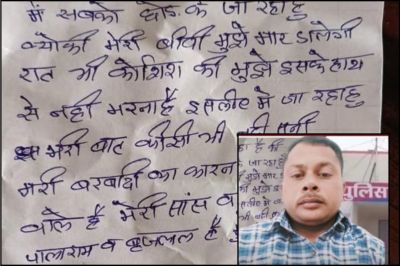 में सबको छोड़ के जा रहा हु
क्योकी मेरी बीवी मुझे मार डालेगी
रात भी कोशिश की मुझे इसके हाथ
से नही मरना है इसलीए मे जा रहाहु
मेरी बात कीसी भी
मेरी बरबादी का कारन
वाले है मेरी सांस व
पालाराम व बृजलाल है
पुलिस